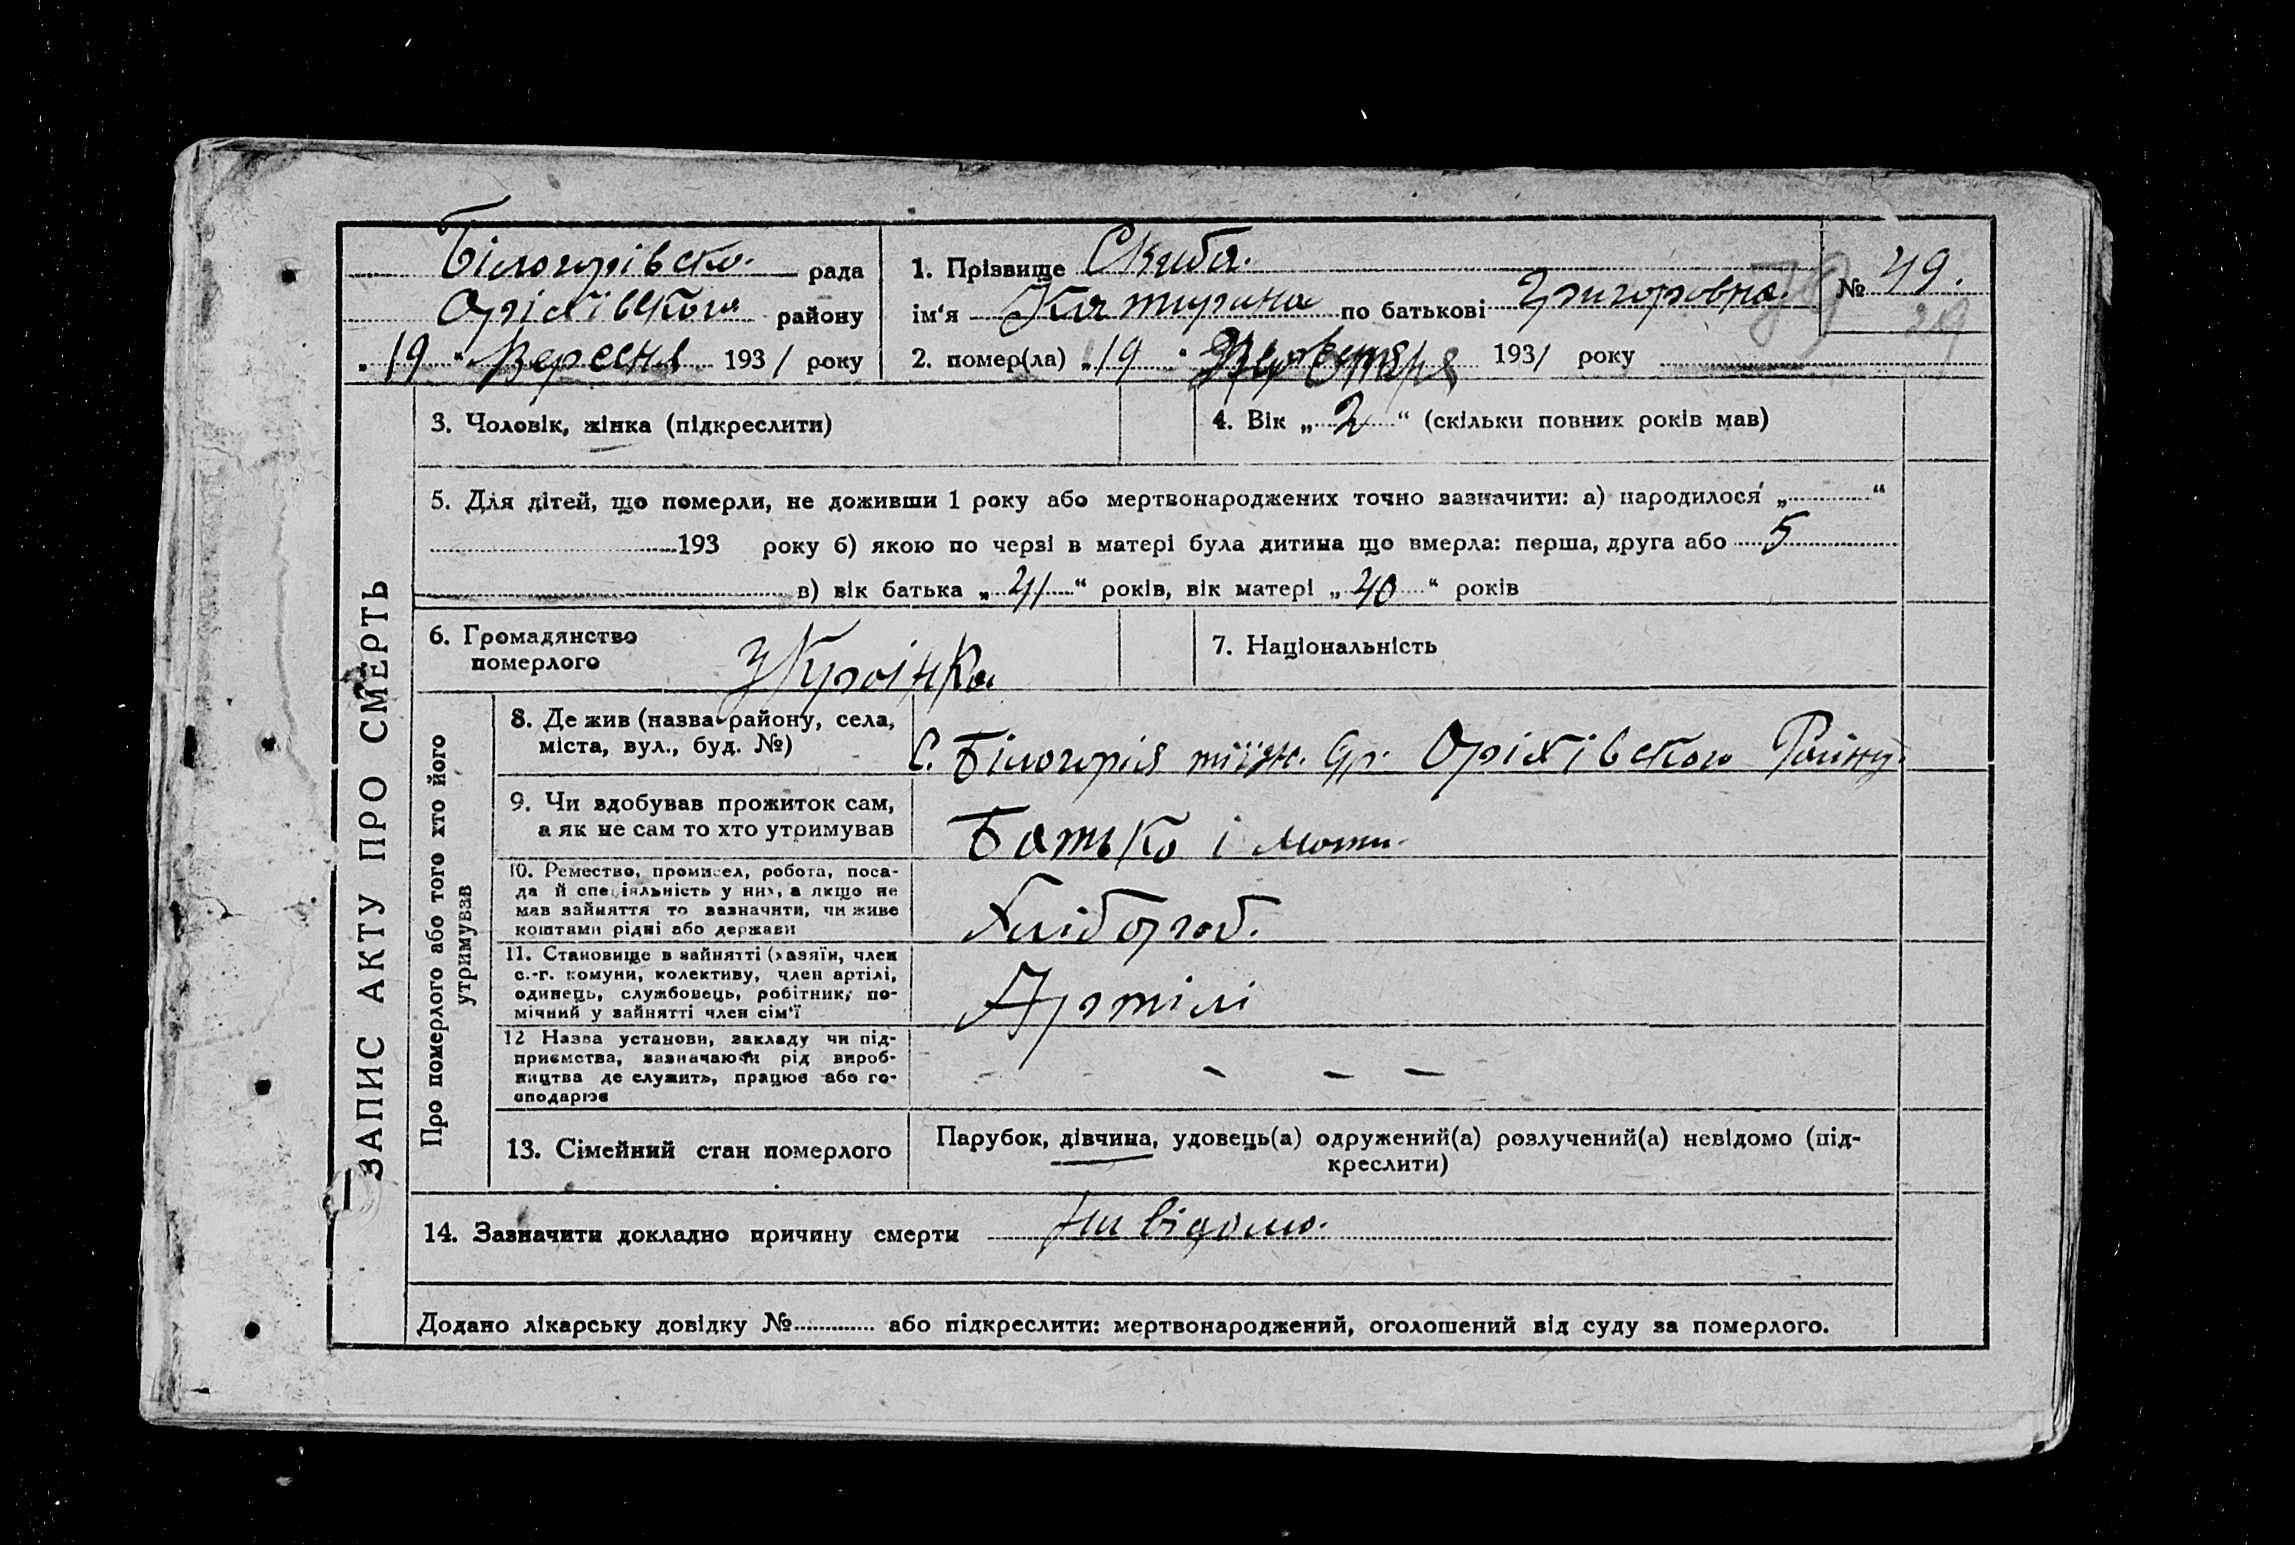 Білогорівсько рада
Оріхівського району
„19“ Вересня 1931 року
1. Прізвище Скиба.
ім'я Катирина по батькові Григоровна.
№ 49.
39
2. помер(ла) „19“ 1931 року
ЗАПИС АКТУ ПРО СМЕРТЬ
3. Чоловік, жінка (підкреслити)
4. Вік „2“ (скільки повних років мав)
5. Для дітей, що померли, не доживши 1 року або мертвонароджених точно зазначити: а) народилося „ “
193 року б) якою по черві в матері була дитина що вмерла: перша, друга або 5
в) вік батька „41“ років, вік матері „40“ років
6. Громадянство
померлого
Україінка
7. Національність
Про померлого або того хто його
утримував
8. Де жив (назва району, села,
міста, вул., буд. №)
С. Білогорія Оріхівского Району
9. Чи здобував прожиток сам,
а як не сам то хто утримував
Батько і мати.
10. Ремество, промисел, робота, поса-
да й спеціяльність у них, а якщо не
мав зайняття то зазначити, чи живе
коштами рідні або держави
Хлібороб.
11. Становище в зайнятті (хазяїн, член
с.-г. комуни, колективу, член артілі,
одинець, службовець, робітник, по-
мічний у зайнятті член сім'ї
Артілі
12 Назва установи, закладу чи під-
приємства, зазначаючи рід вироб-
ництва де служить, працює або го-
сподарює
- - - -
13. Сімейний стан померлого
Парубок, дівчина, удовець(а) одружений(а) розлучений(а) невідомо (під-
креслити)
14. Зазначити докладно причину смерти невідомо.
Додано лікарську довідку № або підкреслити: мертвонароджений, оголошений від суду за померлого.